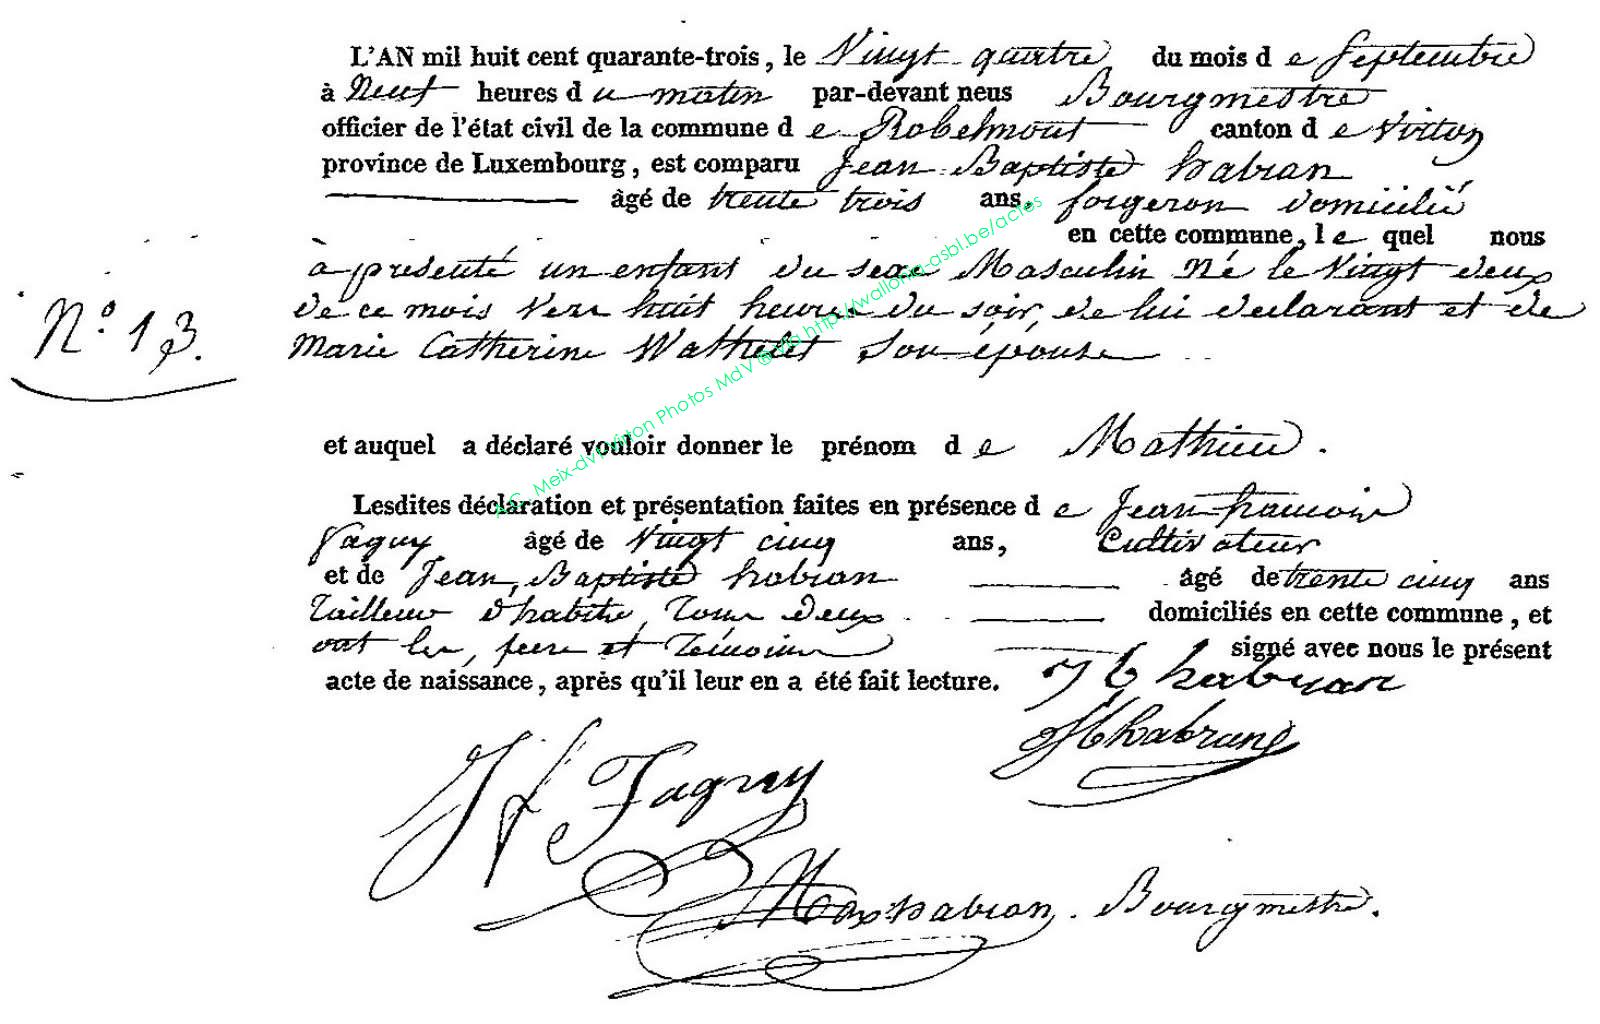 L'AN mil huit cent quarante-trois, le Vingt quatre du mois d e Septembre
à Neuf heures d u matin par-devant neus Bourgmestre
officier de l'état civil de la commune d e Robelmont canton d e Virton
province de Luxembourg, est comparu Jean Baptiste habran
âgé de trente trois ans, forgeron domicilié
en cette commune, l e quel nous
à presenté un enfant du sexe Masculin Né le Vingt deux
de ce mois Vers huit heures du soir, de lui declarant et de
Marie Catherine Wathelet Son épouse
N.o 13.
et auquel a déclaré vouloir donner le prénom d e Mathieu.
Lesdites déclaration et présentation faites en présence d e Jean francois
fagny âgé de Vingt cinq ans, Cultivateur
et de Jean, Baptiste habran âgé de trente cinq ans
Tailleur d'habits, Tous deux domiciliés en cette commune, et
ont les, pere et Témoins signé avec nous le présent
acte de naissance, après qu'il leur en a été fait lecture.
J b habran
habrant
J f Fagny
habran. Bourgmestre.
A.C. Meix-dvt-Virton Photos MdV ® Via http://wallonia-asbl.be/actes